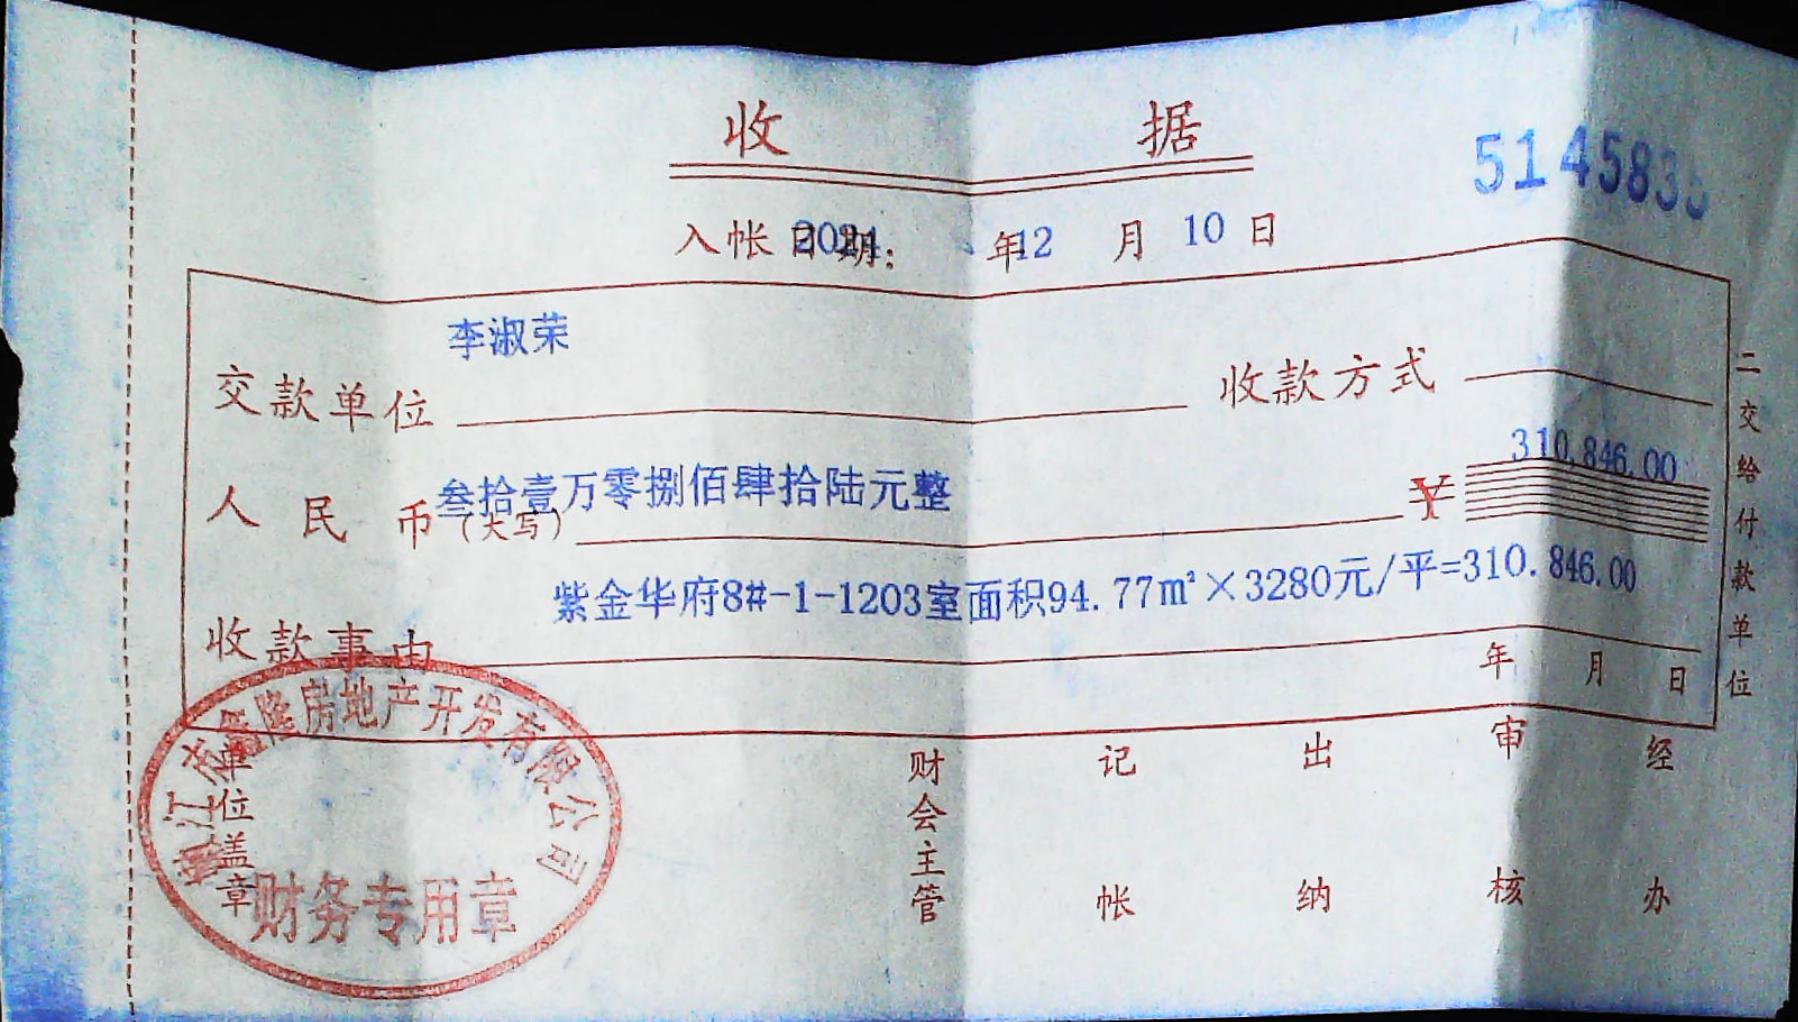 收据
5145835
入帐日期： 2021 年 12 月 10 日
李淑荣
交款单位 收款方式
人民币（大写） 叁拾壹万零捌佰肆拾陆元整 ¥ 310.846.00
紫金华府8#-1-1203室面积94.77m²×3280元/平=310.846.00
收款事由
年 月 日
二交给付款单位
单位盖章
财会主管 记帐 出纳 审核 经办
隆房地产开发有限公司
财务专用章